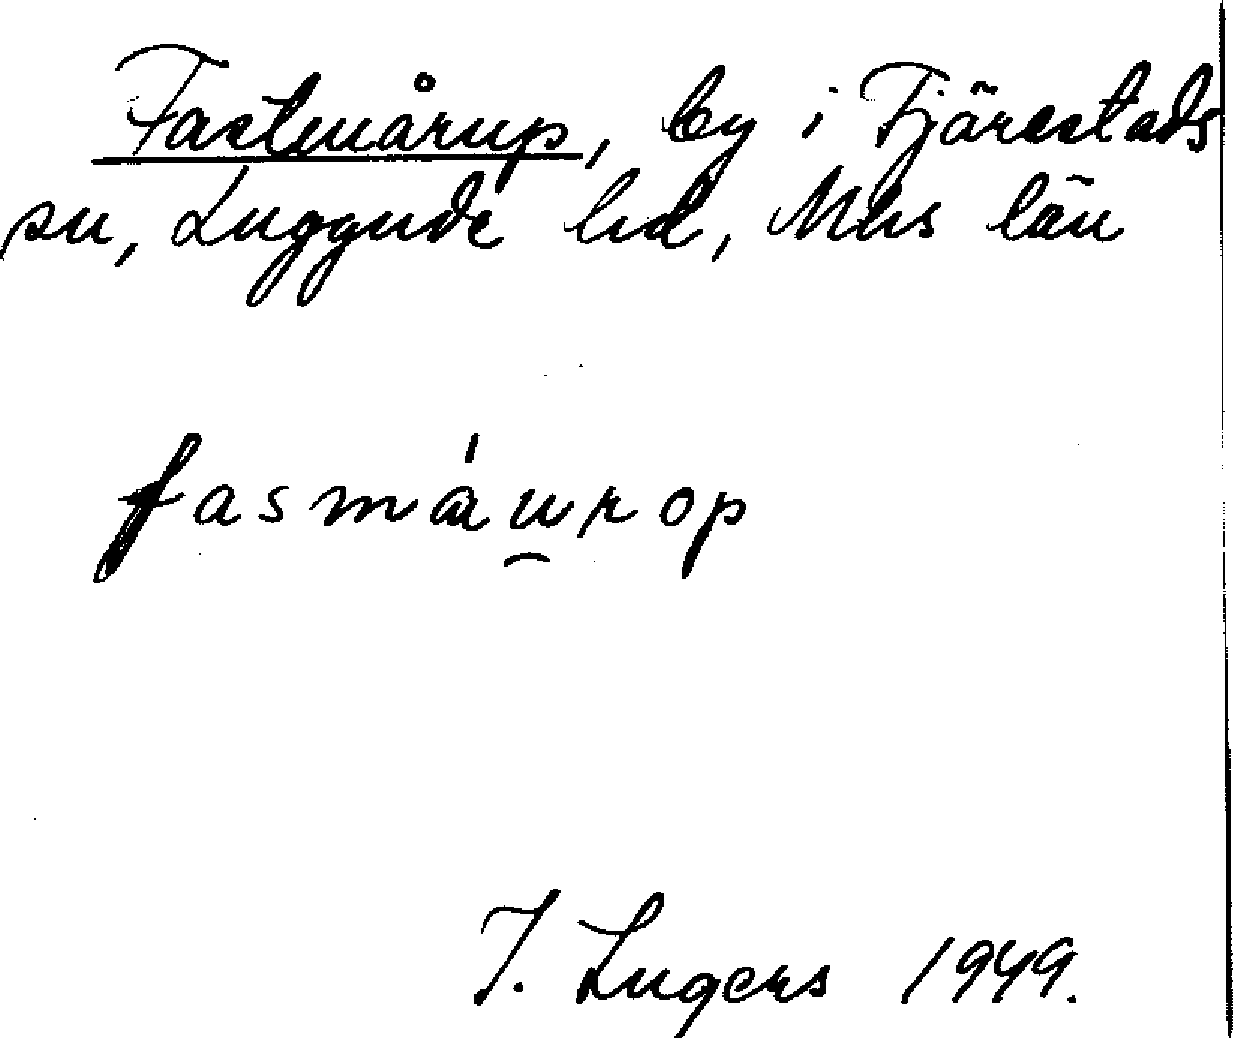 Fastmårup, by i Fjärestads
sn, Luggude hd, Mhs län
fasmáurop
I. Ingers 1949.